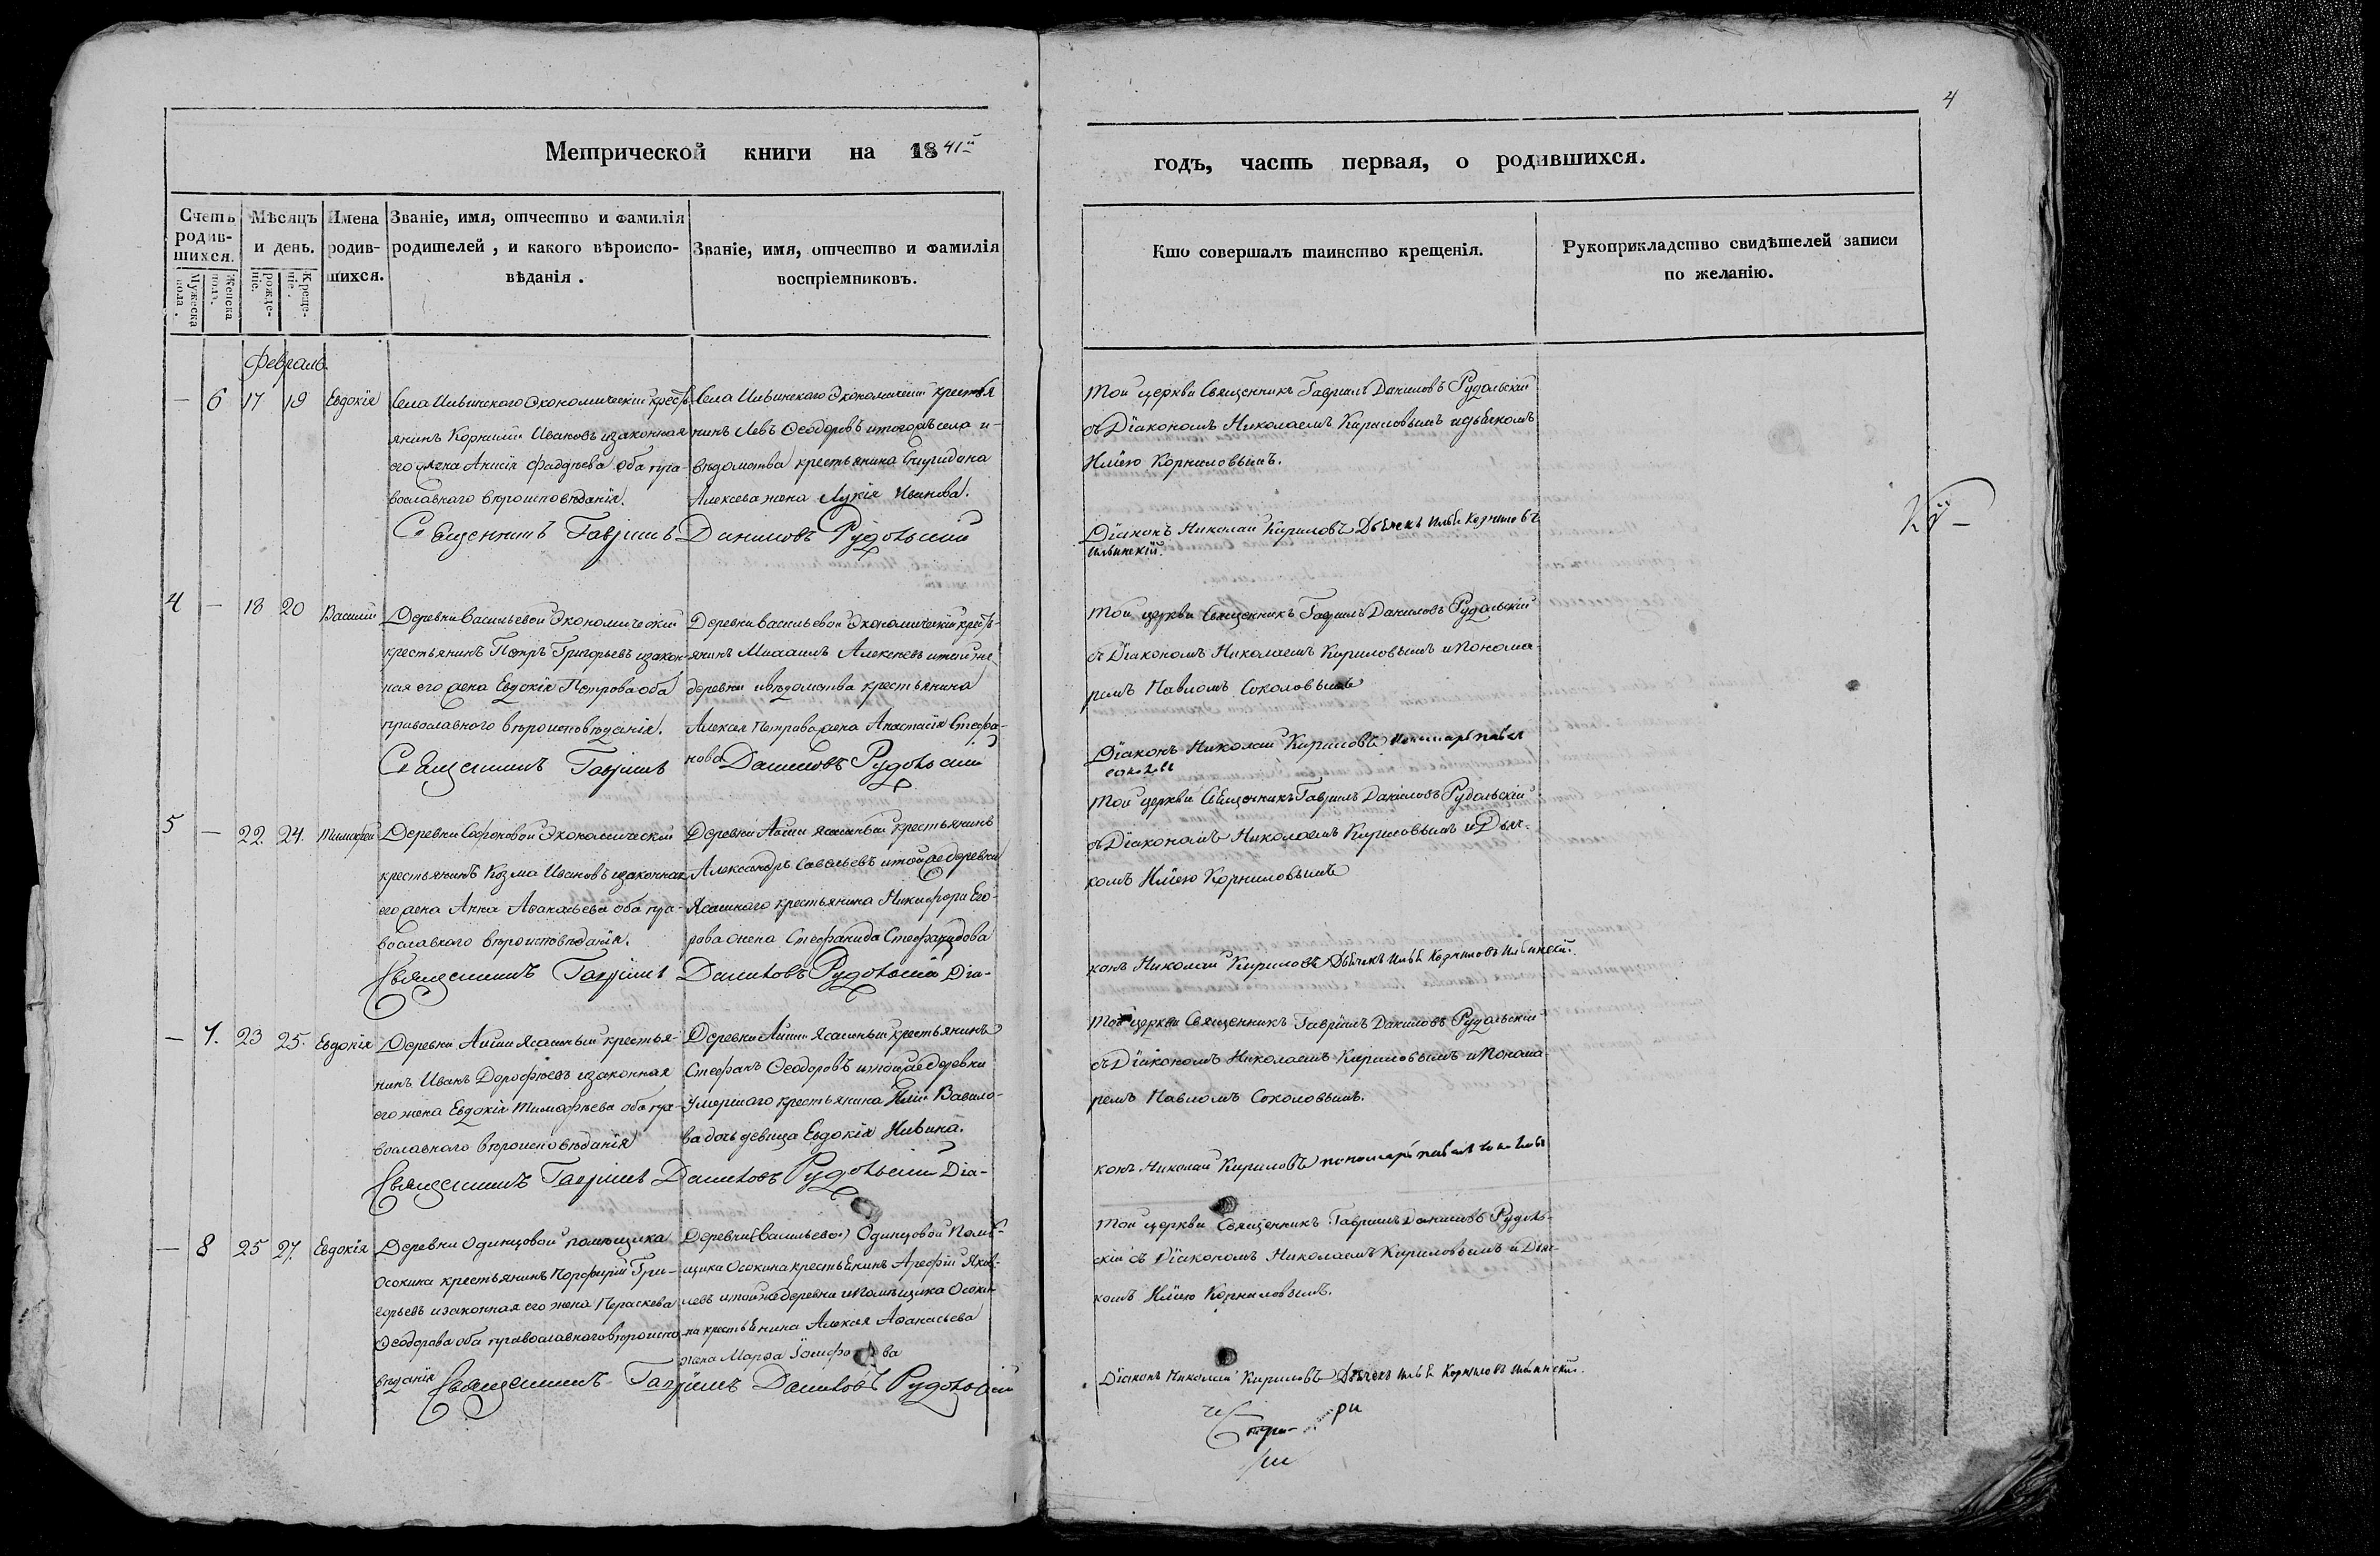 4
Метрической книги на 1841й
годъ, часть первая, о родившихся.
Счетъ родив-шихся.
Мужеска пола.
Женска пола.
Мѣсяцъ и день.
Рожде-ніе.
Креще-ніе.
Имена родив-шихся.
Званіе, имя, отчество и фамилія
родителей, и какого вѣроиспо-
вѣданія.
Званіе, имя, отчество и фамилія
воспріемниковъ.
Кто совершалъ таинство крещенія.
Рукоприкладство свидѣтелей записи
по желанію.
Февраль.
— 6 17 19 Евдокія
Села Ильинскаго Экономическій кресть-
янинъ Корнилій Ивановъ изаконная
его жена Анисія Фаддѣева оба пра-
вославнаго вѣроисповѣданія.
Села Ильинскаго Экономическій крестья
нинъ Левъ Ѳеодоровъ итогожъ села и-
вѣдомства крестьянина Спиридона
Алексева жена Лукія Иванова.
Священникъ Гавріилъ Даниловъ Рудольскій
Той церкви Священникъ Гавріилъ Даниловъ Рудольскій
съ Діакономъ Николаемъ Кириловымъ идьячкомъ
Иліею Корниловымъ.
Діаконъ Николай Кириловъ Дьячекъ Илья Корниловъ
Ильинскій.
4 — 18 20 Василій
Деревни Васильевой Экономическій
крестьянинъ Петръ Григорьевъ изакон-
ная его жена Евдокія Петрова оба
православнаго вѣроисповѣданія.
Деревни Васильевой Экономическій кресть-
янинъ Михаилъ Алексеевъ итойже
деревни ивѣдомства крестьянина
Алексея Петрова жена Анастасія Стефа-
нова
Священникъ Гавріилъ Даниловъ Рудольскій
Той церкви Священникъ Гавріилъ Даниловъ Рудольскій
съ Діакономъ Николаемъ Кириловымъ иПонома-
ремъ Павломъ Соколовымъ
Діаконъ Николай Кириловъ Пономарь Павел
соколов
5 — 22. 24. Тимофей
Деревни Сафоновой Экономическій
крестьянинъ Козма Ивановъ изаконная
его жена Анна Аѳанасьева оба пра-
вославнаго вѣроисповѣданія.
Деревни Аиши Ясашный крестьянинъ
Александръ Савельевъ итойже деревни
Ясашнаго крестьянина Никифора Его-
рова жена Стефанида Стефанидова
Священникъ Гавріилъ Даниловъ Рудольскій Діа-
Той церкви Священникъ Гавріилъ Даниловъ Рудольскій
съ Діакономъ Николаемъ Кириловымъ и Дьяч-
комъ Иліею Корниловымъ
конъ Николай Кириловъ Дьячекъ Илья Корниловъ Ильинскій.
— 7. 23 25. Евдокія
Деревни Аиши Ясашный крестья-
нинъ Иванъ Дорофѣевъ изаконная
его жена Евдокія Тимофѣева оба пра-
вославнаго вѣроисповѣданія
Деревни Аиши Ясашный крестьянинъ
Стефанъ Ѳеодоровъ итойже деревни
Умершаго крестьянина Иліи Вавило-
ва дочь девица Евдокія Ильина.
Священникъ Гавріилъ Даниловъ Рудольскій Діа-
Той церкви Священникъ Гавріилъ Даниловъ Рудольскій
съ Діакономъ Николаемъ Кириловымъ иПонома-
ремъ Павломъ Соколовымъ.
конъ Николай Кириловъ пономарь павел соколовъ
— 8 25 27. Евдокія
Деревни Одинцовой помѣщика
Осокина крестьянинъ Порфирій Гри-
горьевъ изаконная его жена Параскева
Ѳеодорова оба православнаго вѣроиспо-
вѣданія
Деревни (Васильевой) Одинцовой Помѣ-
щика Осокина крестьянинъ Арефій Яков-
левъ итойже деревни иПомѣщика Осоки-
на крестьянина Алексея Аѳанасьева
жена Марѳа
Священникъ Гавріилъ Даниловъ Рудольскій
Той церкви Священникъ Гавріилъ Даниловъ Рудоль-
скій съ Діакономъ Николаемъ Кириловымъ и Дьяч-
комъ Иліею Корниловымъ.
Діаконъ Николай Кириловъ Дьячекъ Илья Корниловъ Ильинскій.
ри